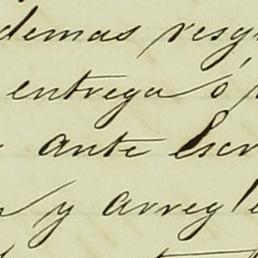 demas resg
entrega ó
ante Escr
y arregle